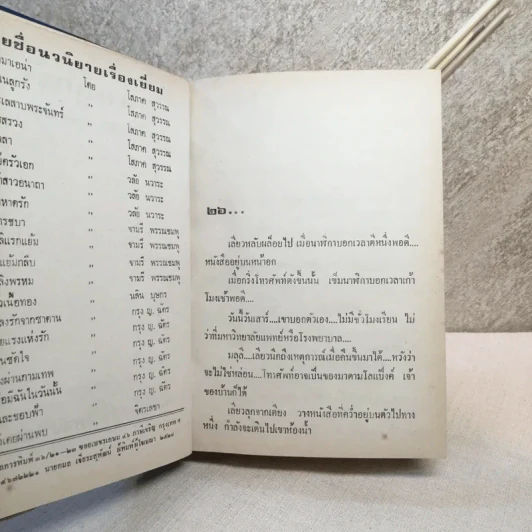 ยชื่อนวนิยายเรื่องเยี่ยม
มาเอน่า โดย โสภาค สุวรรณ
นลูกรัง " โสภาค สุวรรณ
เลสาบพระจันทร์ " โสภาค สุวรรณ
สรวง " โสภาค สุวรรณ
ลา " โสภาค สุวรรณ
ตัวเอก " วลัย นวาระ
สาวอนาถา " วลัย นวาระ
หาดรัก " วลัย นวาระ
รชบา " จามรี พรรณชมพู
แรกแย้ม " จามรี พรรณชมพู
แย้มกลีบ " จามรี พรรณชมพู
งพรหม " นลิน บุษกร
เนื้อทอง " กรุง ญ. ฉัตร
งรักจากซาตาน " กรุง ญ. ฉัตร
ยแรงแห่งรัก " กรุง ญ. ฉัตร
นขัดใจ " กรุง ญ. ฉัตร
งผ่านกามเทพ " กรุง ญ. ฉัตร
อมีฉันในวันนั้น " กรุง ญ. ฉัตร
และขอบฟ้า " จิตรเลขา
เคยผ่านพบ "
๒๖...
เลี่ยวหลับผล็อยไป เมื่อนาฬิกาบอกเวลาตีหนึ่งพอดี....
หนังสืออยู่บนหน้าอก
เมื่อกริ่งโทรศัพท์ดังขึ้นนั้น เข็มนาฬิกาบอกเวลาเก้า
โมงเช้าพอดี....
วันนี้วันเสาร์....เขาบอกตัวเอง....ไม่มีชั่วโมงเรียน ไม่
ว่าที่มหาวิทยาลัยแพทย์หรือโรงพยาบาล....
มลุลี....เลี่ยวนึกถึงเหตุการณ์เมื่อคืนขึ้นมาได้....หวังว่า
จะไม่ใช่หล่อน....โทรศัพท์อาจเป็นของมาดามโลแบ็งค์ เจ้า
ของบ้านก็ได้
เลี่ยวลุกจากเตียง วางหนังสือที่คว่ำอยู่บนตัวไปทาง
หนึ่ง กำลังจะเดินไปเข้าห้องน้ำ